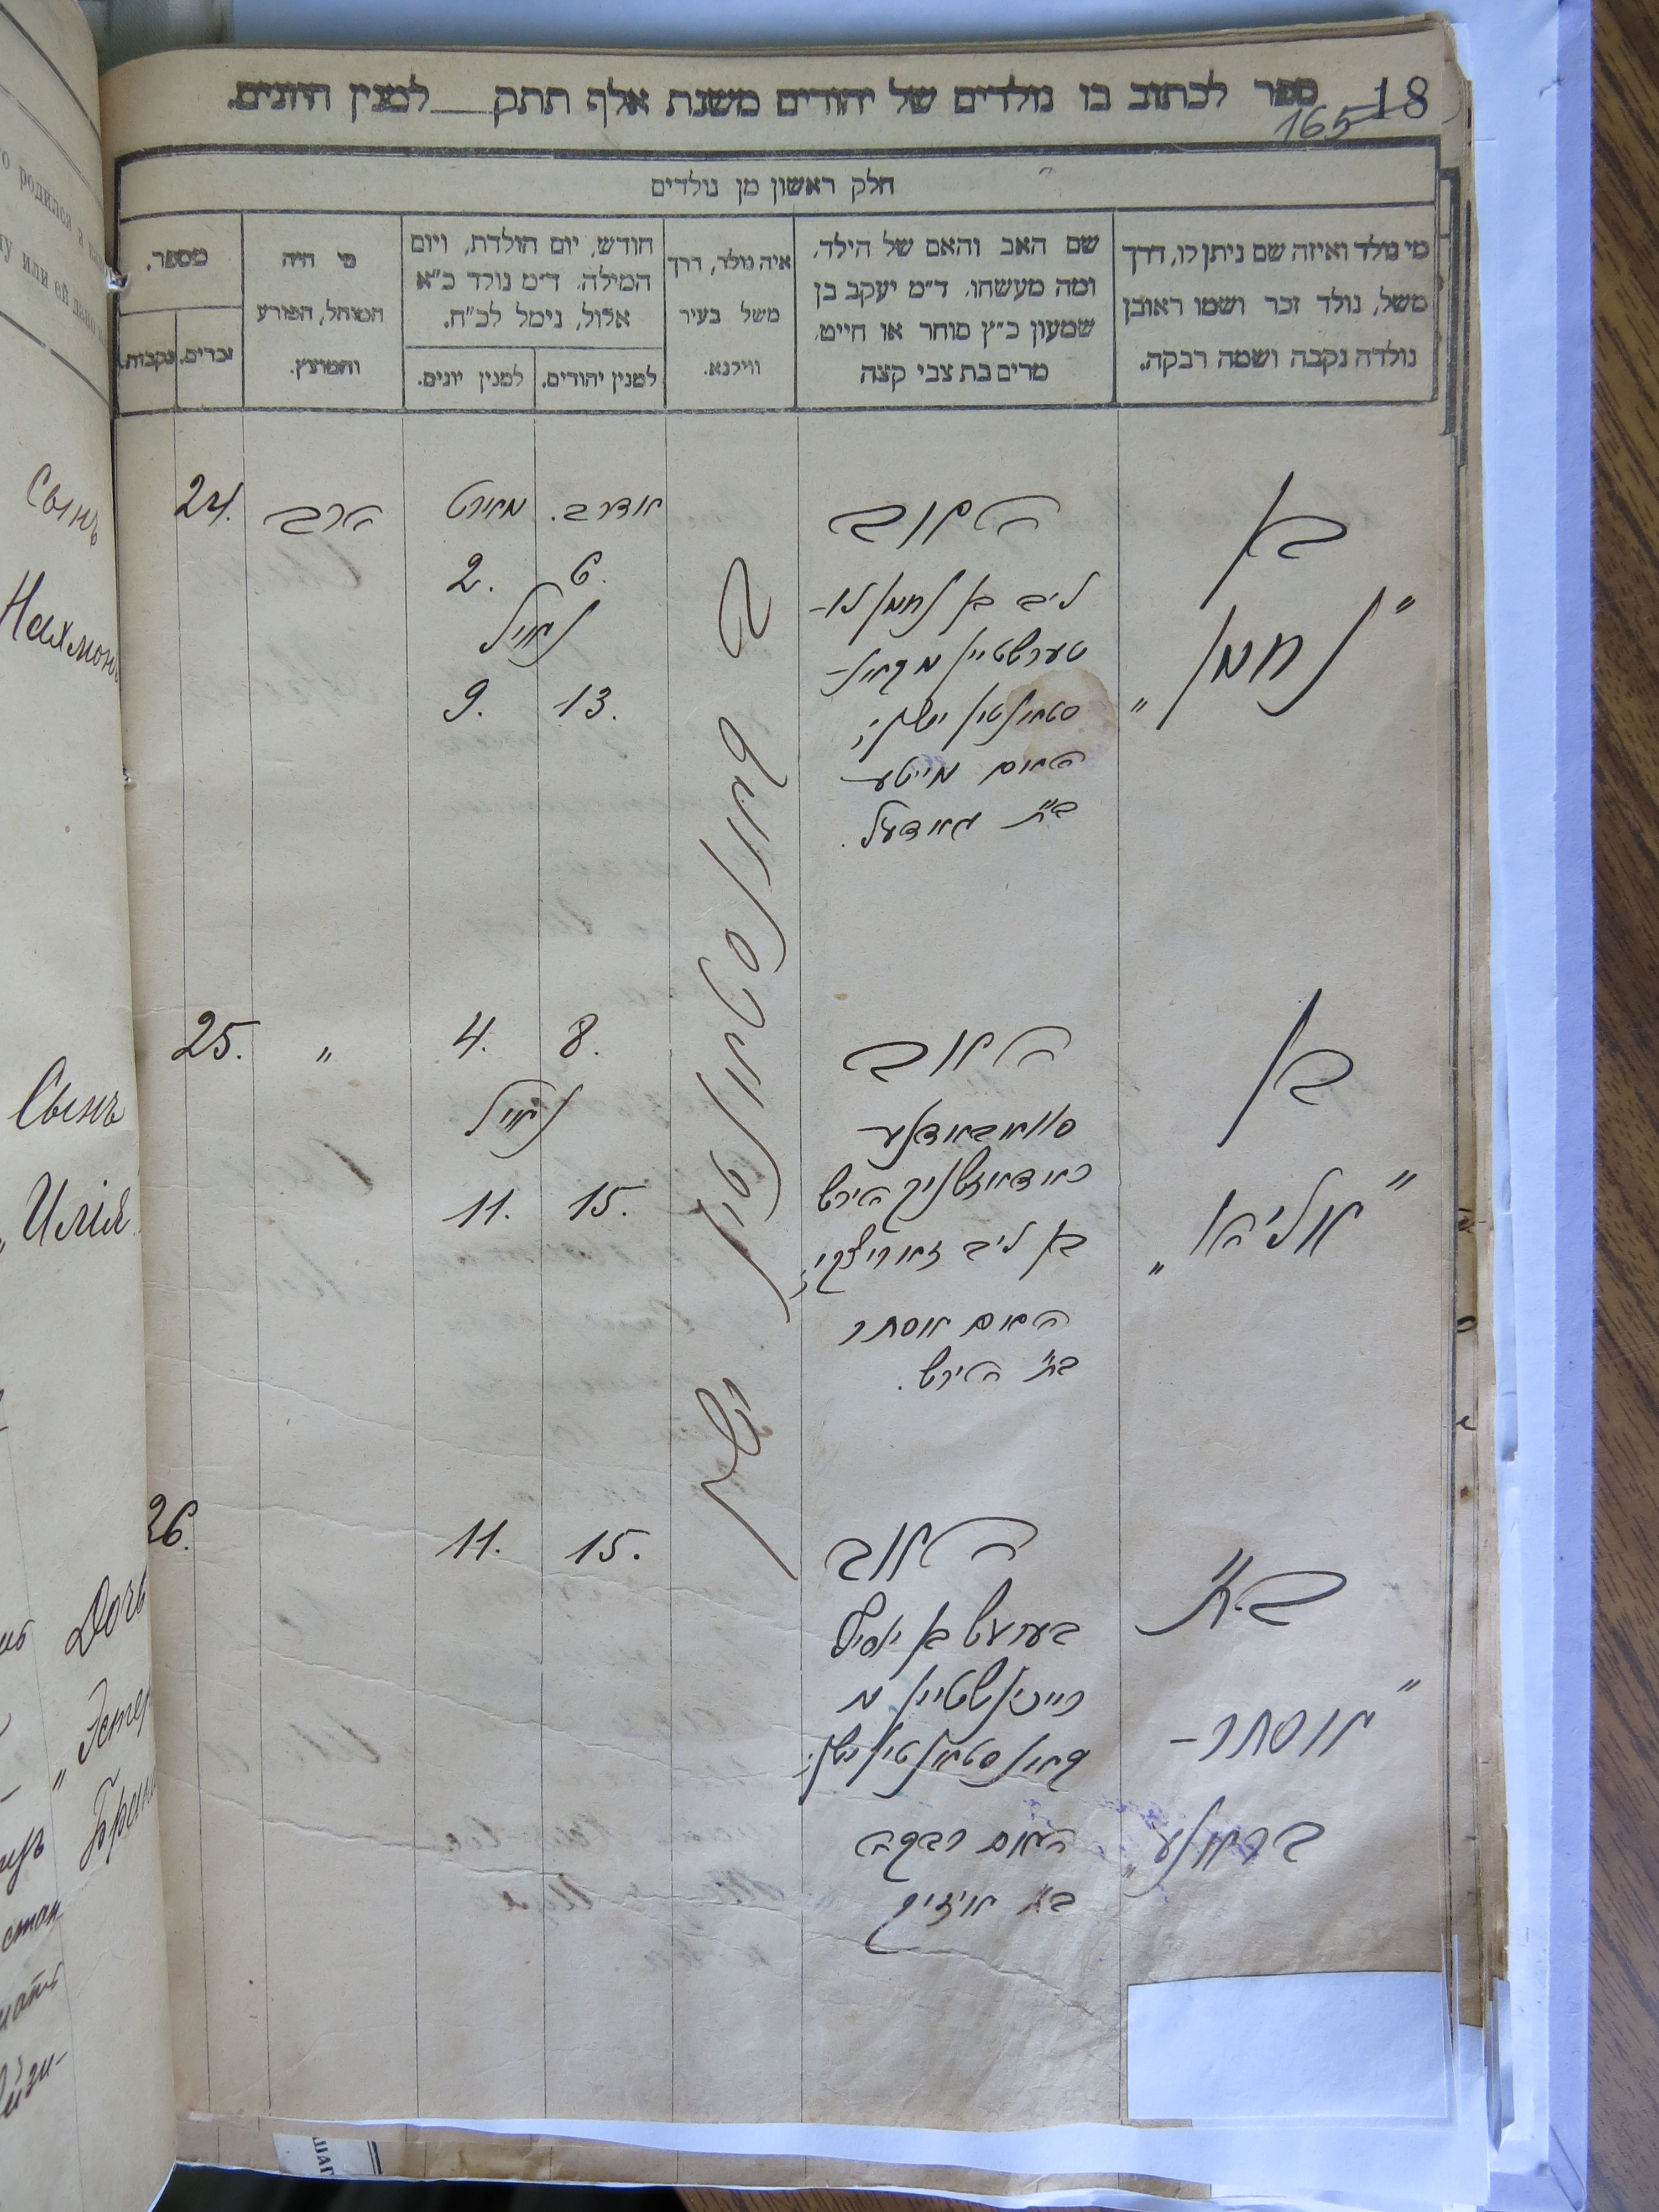 ספר לכתוב בו נולדים של יהודים משנת אלף תתק___למנין היונים.
18
165
חלק ראשון מן נולדים
מי נולד ואיזה שם ניתן לו, דרך
משל, נולד זכר ושמו ראובן
נולדה נקבה ושמה רבקה.
שם האב והאם של הילד,
ומה מעשהו. ד"מ יעקב בן
שמעון כ"ץ סוחר או חייט,
מרים בת צבי קצה
איה נולד, דרך
משל בעיר
ווילנא.
חודש, יום הולדת, ויום
המילה. ד"מ נולד כ"א
אלול, נימל לכ"ח.
למנין יהודים.
למנין יונים.
מי היה
המוהל, הפורע
והמוצץ.
מספר.
זכרים.
נקבות.
בן
"נחמן"
האב
ליב בן נחמן לו-
טערשטיין מקאנ-
סטאנטין ישן;
האם מייטע
בת
אדר ב.
מארט
6.
2.
נימול
13.
9.
הרב
24.
בן
"אליהו"
האב
הירש
בן ליב
האם אסתר
בת הירש.
8.
4.
נימול
15.
11.
"
25.
בת
"אסתר-
בריינע"
האב
בן יוסף
מ
קאנסטאנטין ישן;
האם רבקה
בת אייזיק
15.
11.
26.
קאנסטאנטין ישן
Сынъ
Нахмонъ
Сынъ
"Илія
Дочь
"Эстер